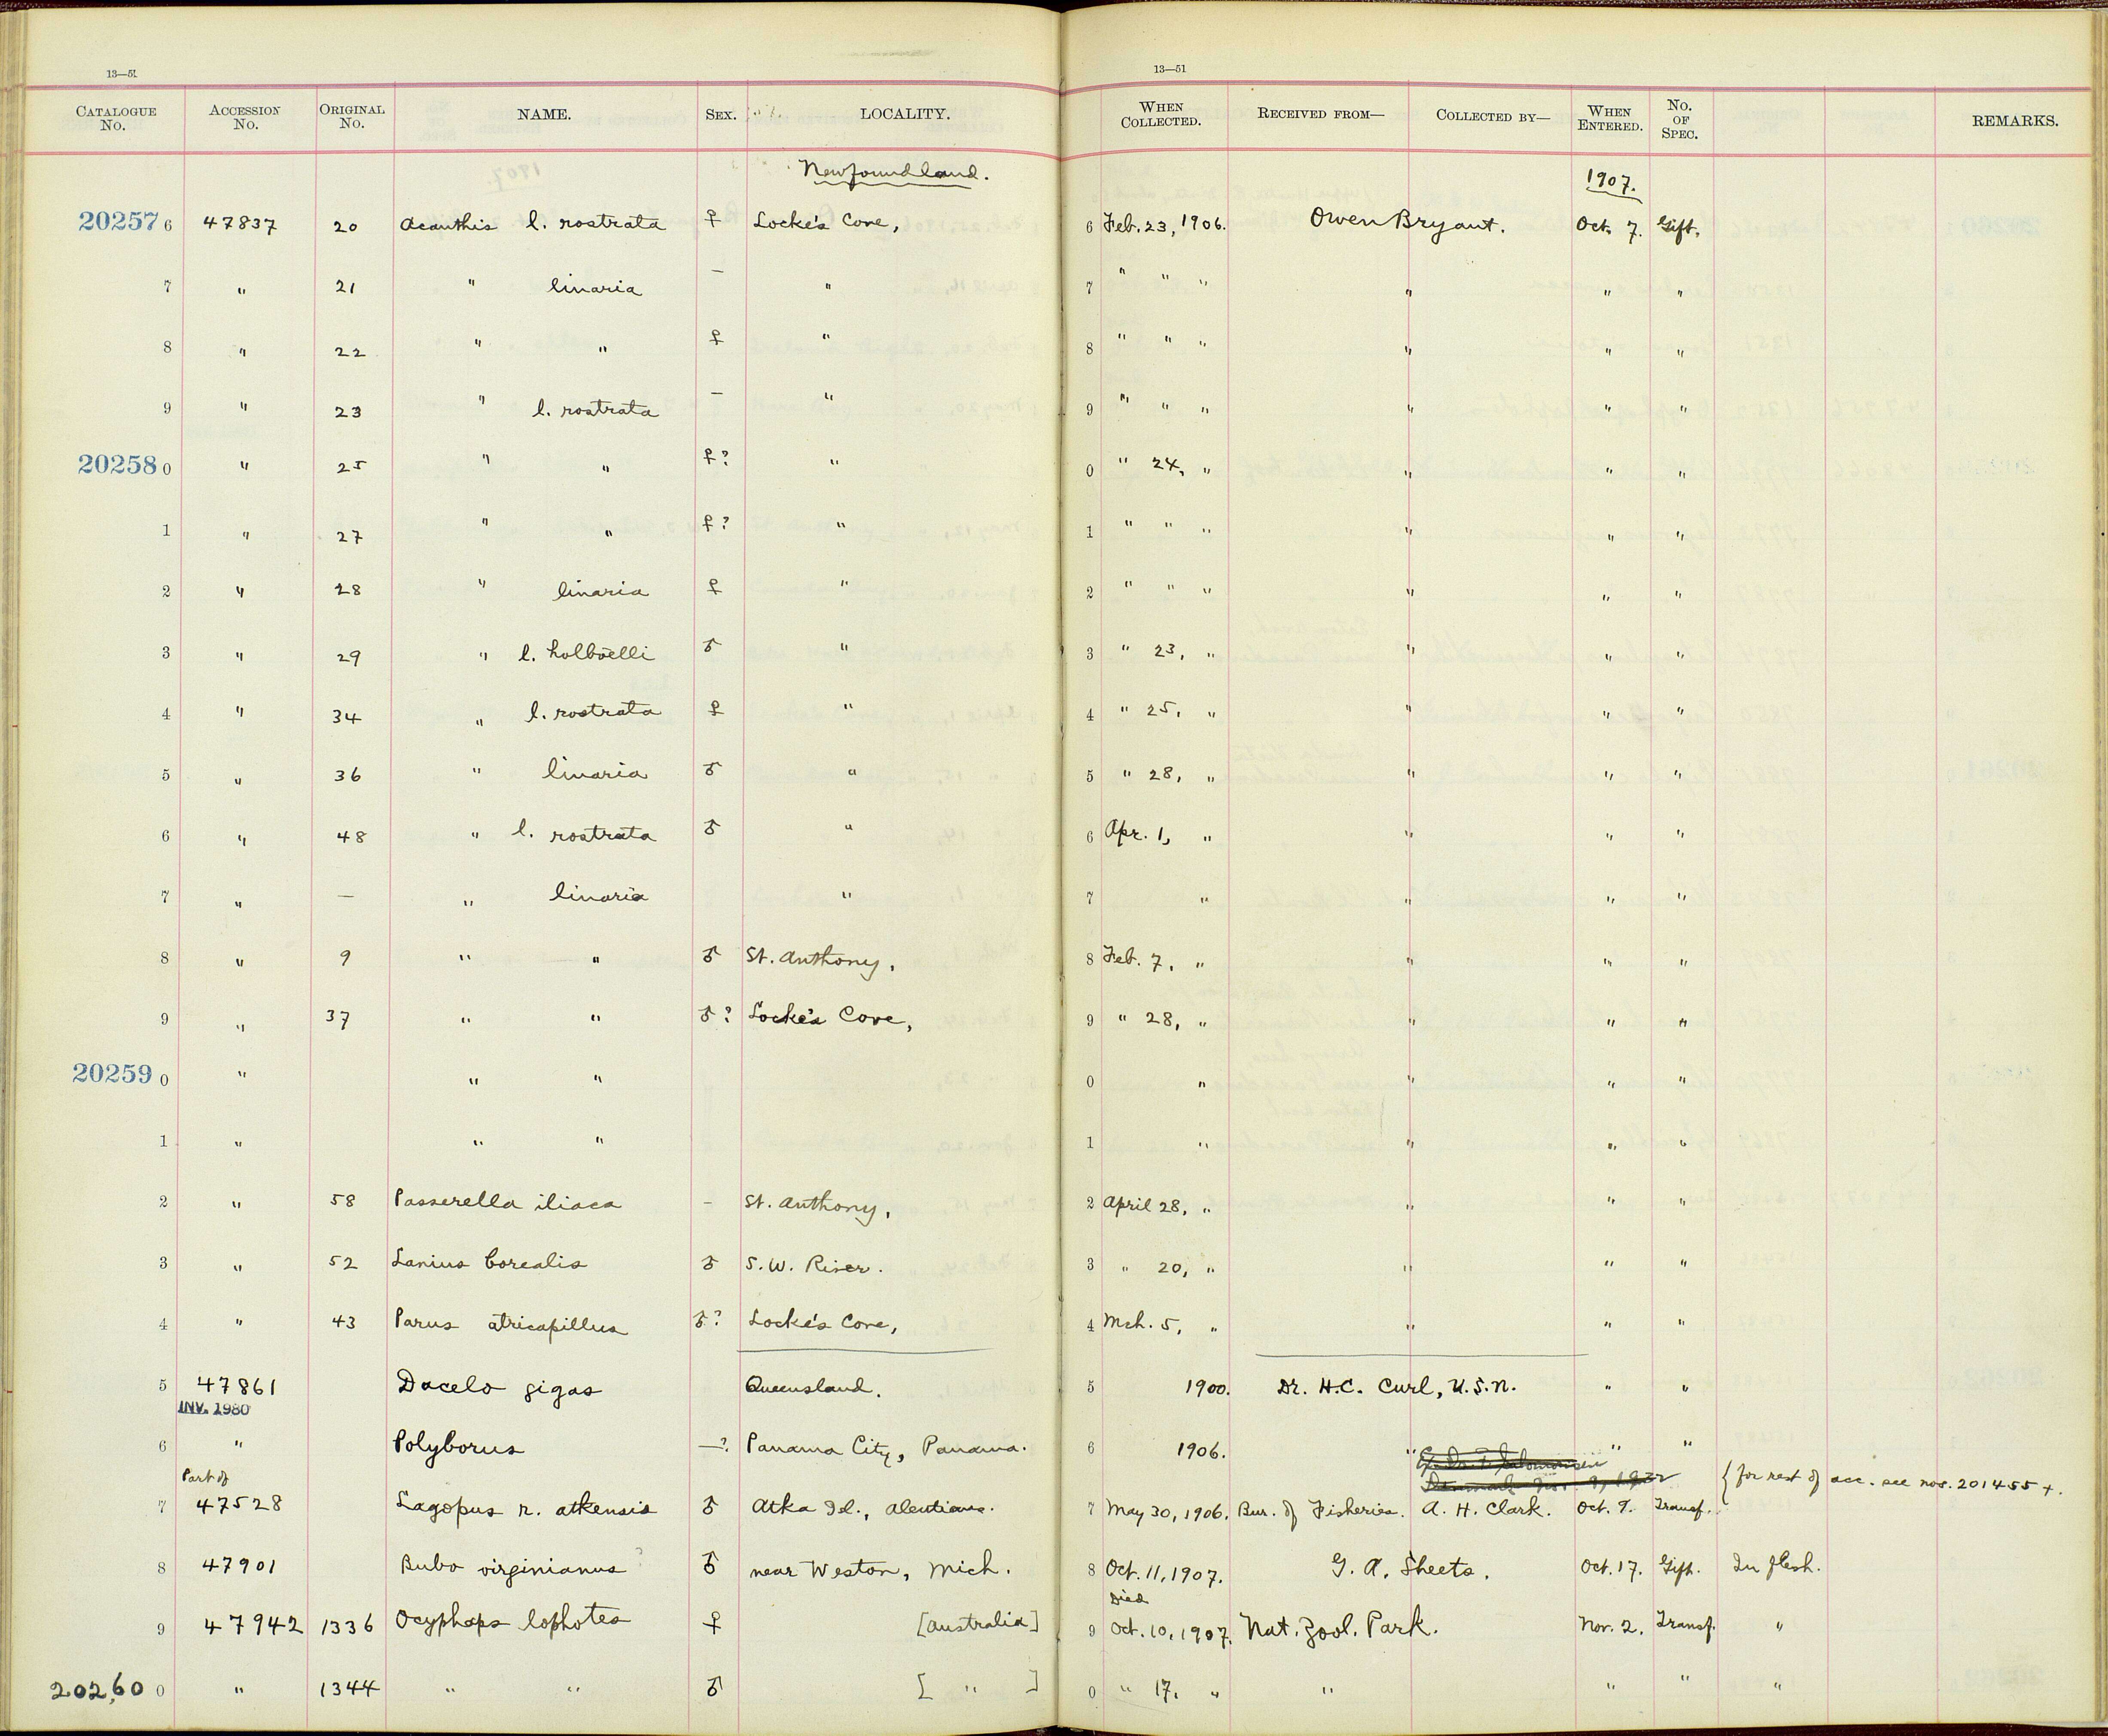 13—51
13—51
CATALOGUE No. ACCESSION No. ORIGINAL No. NAME. SEX. LOCALITY. WHEN COLLECTED. RECEIVED FROM— COLLECTED BY— WHEN ENTERED. No. OF SPEC. REMARKS.
Newfoundland. 1907.
20257 6 47837 20 Acanthis l. rostrata ♀ Locke's Cove, 6 Feb. 23, 1906. Owen Bryant. Oct. 7. Gift.
7 " 21 " linaria — " 7 " " " " " "
8 " 22 " " ♀ " 8 " " " " " "
9 " 23 " l. rostrata — " 9 " " " " " "
20258 0 " 25 " " ♀? " 0 " 24, " " " "
1 " 27 " " ♀? " 1 " " " " " "
2 " 28 " linaria ♀ " 2 " " " " " "
3 " 29 " l. holbœlli ♂ " 3 " 23, " " " "
4 " 34 " l. rostrata ♀ " 4 " 25, " " " "
5 " 36 " linaria ♂ " 5 " 28, " " " "
6 " 48 " l. rostrata ♂ " 6 Apr. 1, " " " "
7 " — " linaria " 7 " " " "
8 " 9 " " ♂ St. Anthony, 8 Feb. 7, " " " "
9 " 37 " " ♂? Locke's Cove, 9 " 28, " " " "
20259 0 " " " 0 " " " "
1 " " " 1 " " " "
2 " 58 Passerella iliaca - St. Anthony, 2 April 28, " " " "
3 " 52 Lanius borealis ♂ S.W. River. 3 " 20, " " " "
4 " 43 Parus atricapillus ♂? Locke's Cove, 4 Mch. 5, " " " "
5 47861 Dacelo gigas Queensland. 5 1900. Dr. H.C. Curl, U.S.N. " "
INV. 1980
6 " Polyborus —? Panama City, Panama. 6 1906. " " "
Part of { for rest of acc. see nos. 201455 +.
7 47528 Lagopus r. atkensis ♂ Atka Id., Aleutians. 7 May 30, 1906. Bur. of Fisheries. A. H. Clark. Oct. 9. Transf.
8 47901 Bubo virginianus ? ♂ near Weston, Mich. 8 Oct. 11, 1907. G. A. Sheets. Oct. 17. Gift. In flesh.
Died
9 47942 1336 Ocyphaps lophotes ♀ [Australia] 9 Oct. 10, 1907. Nat. Zool. Park. Nov. 2. Transf. "
20260 0 " 1344 " " ♂ [ " ] 0 " 17, " " " " "